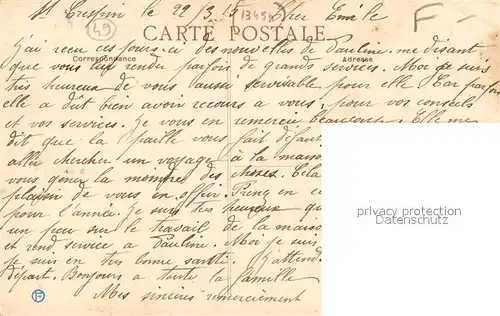 St Crespin le 22/3/15 Cher Emile
13454
F
49
CARTE POSTALE
Correspondance
Adresse
J'ai recu ces jours-ci des nouvelles de Pauline me disant
que vous lui rendez parfois de grands services. Moi je suis
tres heureux de vous aussi servisable pour elle Car parfois
elle a dût bien avoir recours a vous, pour vos conseils
et vos services. Je vous en remercie beaucoup. Elle me
dit que la paille vous fait défaut
aller chercher un voyage à la maison
vous gener la moindre des choses. Cela
plaisir de vous en offrir. Prenez en ce
pour l'année. Je suis tes heureux que
un peu sur le travail de la maison
et rend service a Pauline. Moi je suis
je suis en tres bonne santé. J'attend
départ. Bonjours a toute la famille
Mes sincères remerciement
privacy protection
Datenschutz
F